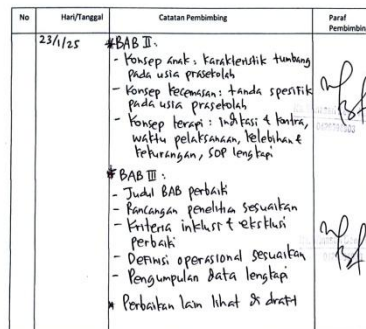 No
Hari/Tanggal
Catatan Pembimbing
Paraf
Pembimbing
23/1/25
* BAB II :
- Konsep anak : karakteristik tumbang
pada usia prasekolah
- Konsep kecemasan : tanda spesifik
pada usia prasekolah
- Konsep terapi : Indikasi & kontra,
waktu pelaksanaan, kelebihan &
kekurangan, SOP lengkapi
* BAB III :
- Judul BAB perbaiki
- Rancangan penelitian sesuaikan
- Kriteria inklusi & eksklusi
perbaiki
- Definisi operasional sesuaikan
- Pengumpulan data lengkapi
* Perbaikan lain lihat di draft